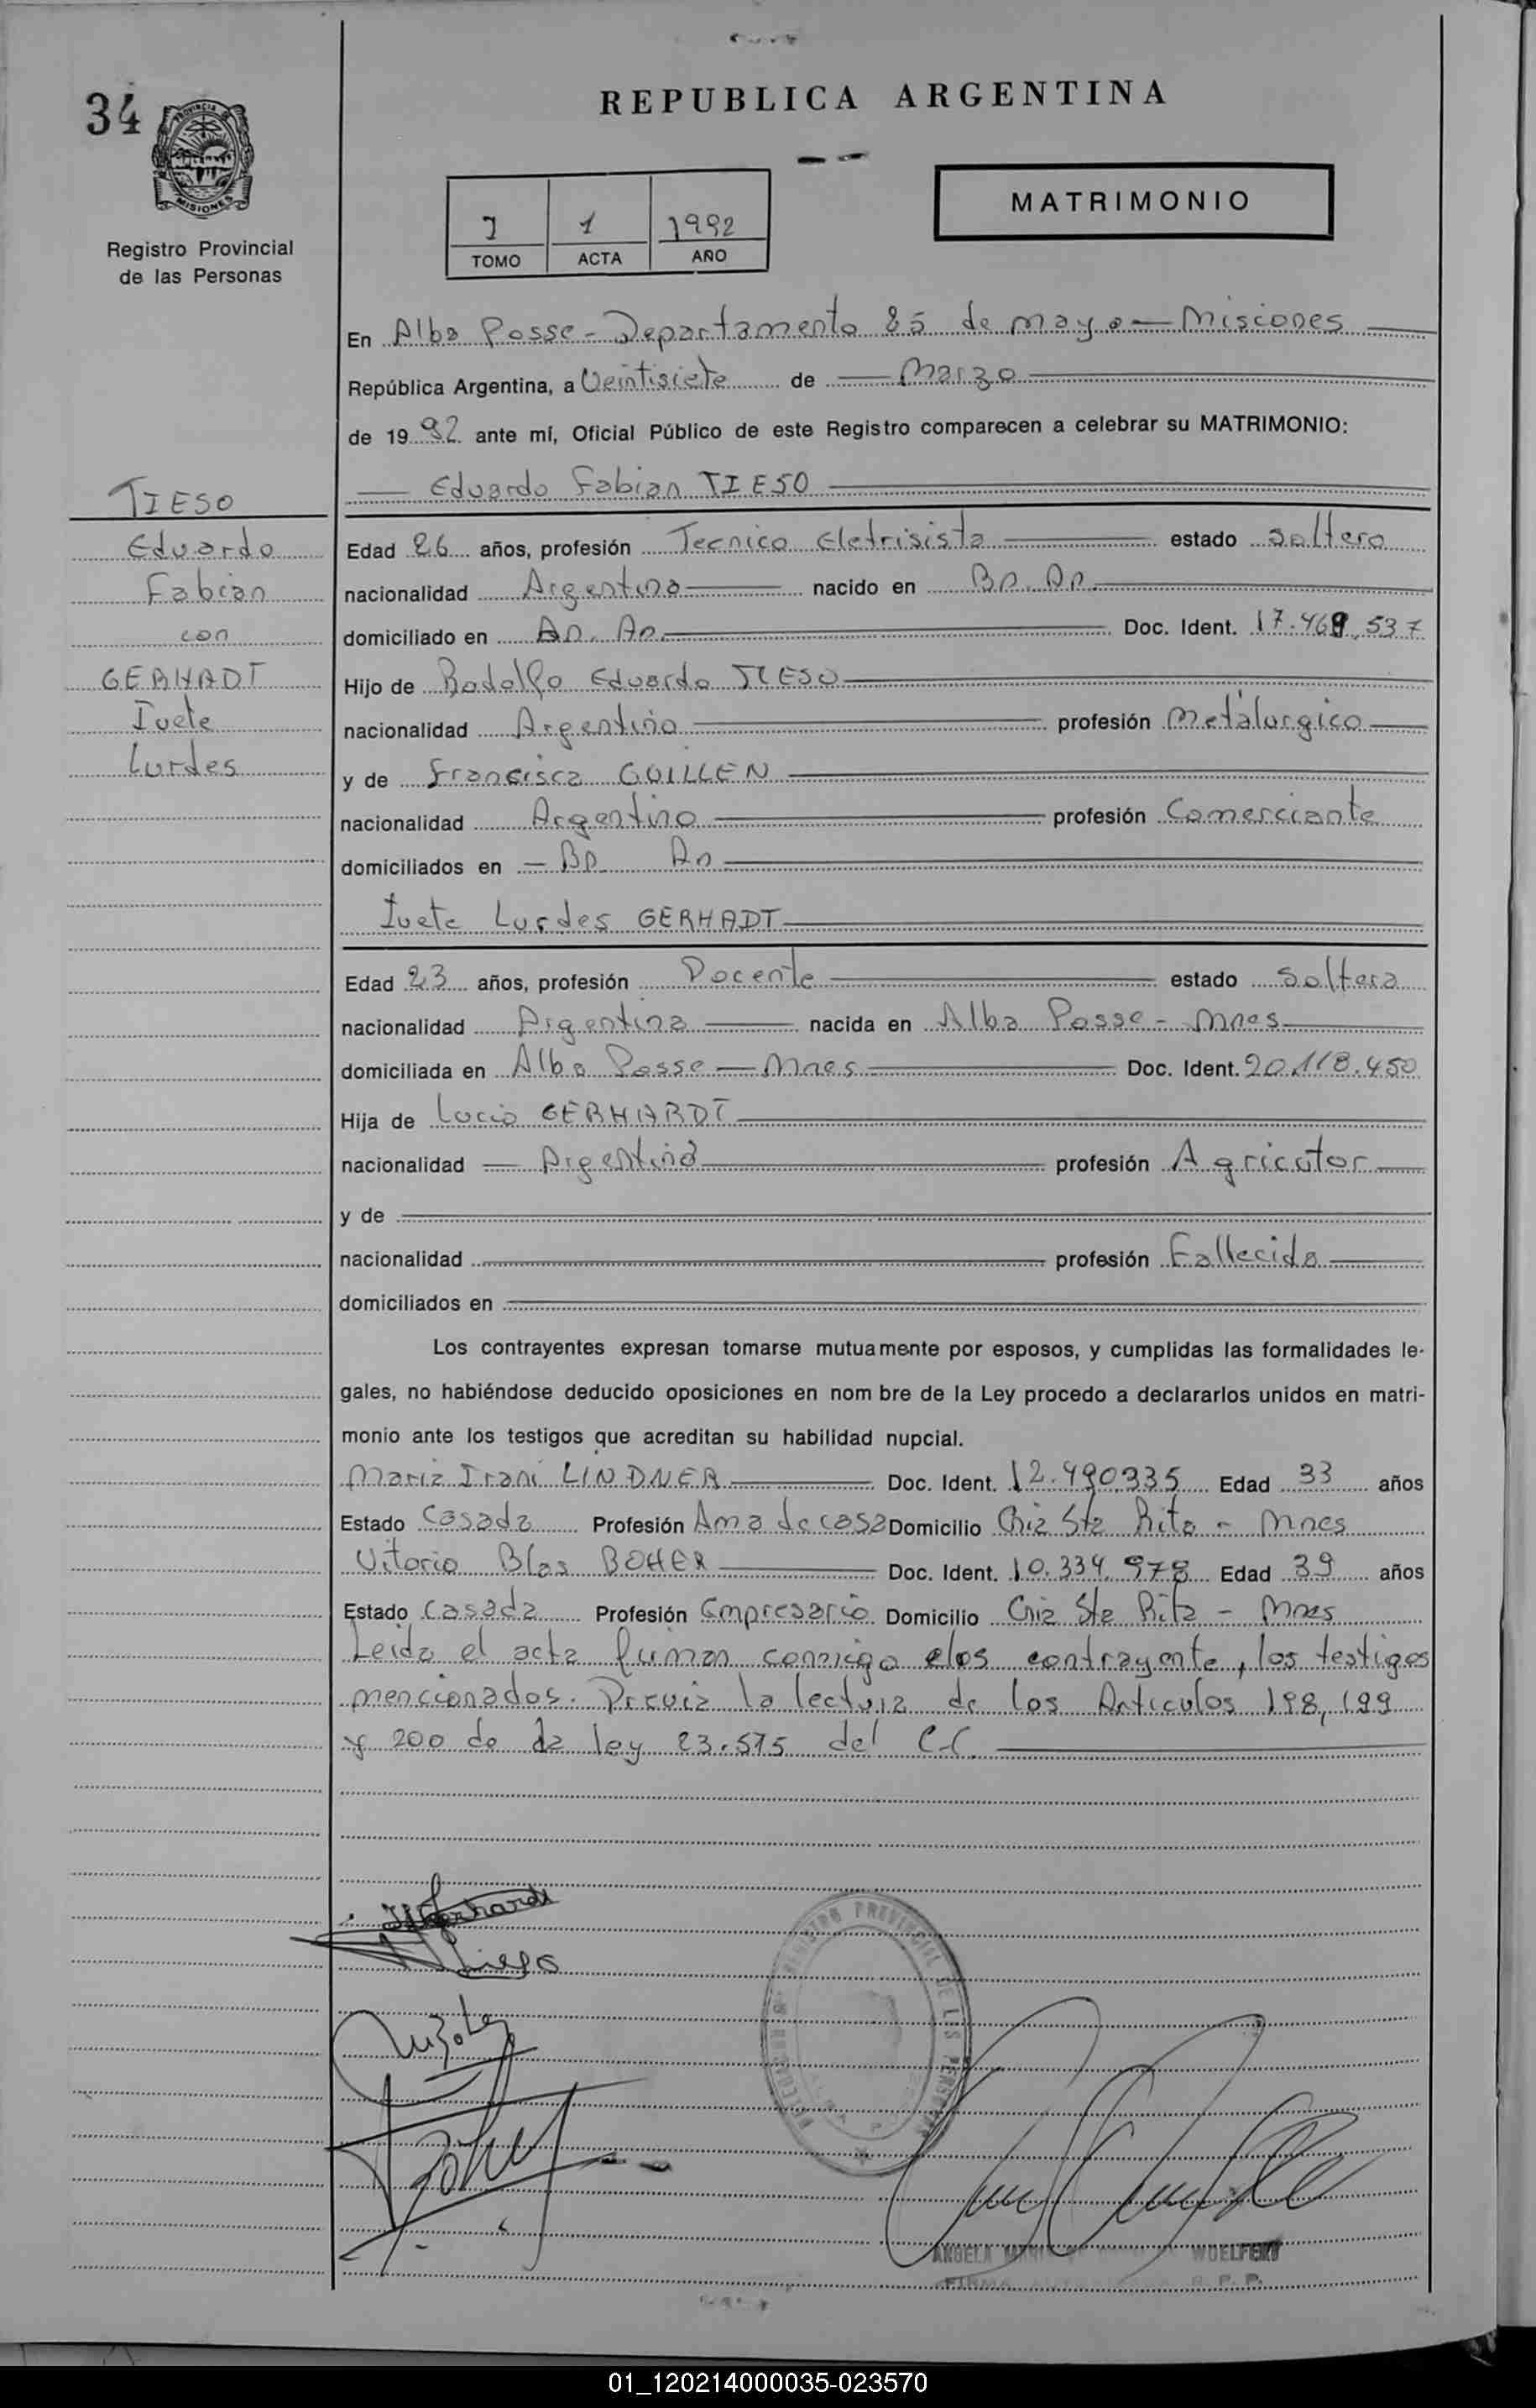 34
PROVINCIA
MISIONES
Registro Provincial
de las Personas
REPUBLICA ARGENTINA
MATRIMONIO
I 1 1992
TOMO ACTA AÑO
En Alba Posse - Departamento 25 de mayo - Misiones
República Argentina, a Veintisiete de Marzo
de 19 92 ante mí, Oficial Público de este Registro comparecen a celebrar su MATRIMONIO:
Eduardo Fabian TIESO
TIESO
Eduardo
Fabian
con
GERHADT
Ivete
Lurdes
Edad 26 años, profesión Tecnico Eletrisista estado Soltero
nacionalidad Argentino nacido en Bn. An.
domiciliado en An. An. Doc. Ident. 17.469.537
Hijo de Rodolfo Eduardo TIESO
nacionalidad Argentino profesión Metalurgico
y de Francisca GUILLEN
nacionalidad Argentino profesión Comerciante
domiciliados en - Bn An
Ivete Lurdes GERHADT
Edad 23 años, profesión Docente estado Soltera
nacionalidad Argentina nacida en Alba Posse - Mnes
domiciliada en Alba Posse - Mnes Doc. Ident. 20.118.450
Hija de Lucio GERHARDT
nacionalidad Argentino profesión Agricutor
y de
nacionalidad profesión Fallecida
domiciliados en
Los contrayentes expresan tomarse mutuamente por esposos, y cumplidas las formalidades le-
gales, no habiéndose deducido oposiciones en nom bre de la Ley procedo a declararlos unidos en matri-
monio ante los testigos que acreditan su habilidad nupcial.
Maria Irani LINDNER Doc. Ident. 12.490.335 Edad 33 años
Estado Casada Profesión Ama de casa Domicilio Cnia Sta Rita - Mnes
Vitorio Blas BOHER Doc. Ident. 10.334.978 Edad 39 años
Estado Casada Profesión Empresario Domicilio Cnia Sta Rita - Mnes
Leida el acta firman conmigo elos contrayente, los testigos
mencionados. Previa la lectura de los Articulos 198, 199
y 200 de la ley 23.515 del C.C.
REGISTRO PROVINCIAL DE LAS PERSONAS
ANGELA WOELFERT
FIRMA R. P. P.
01_120214000035-023570